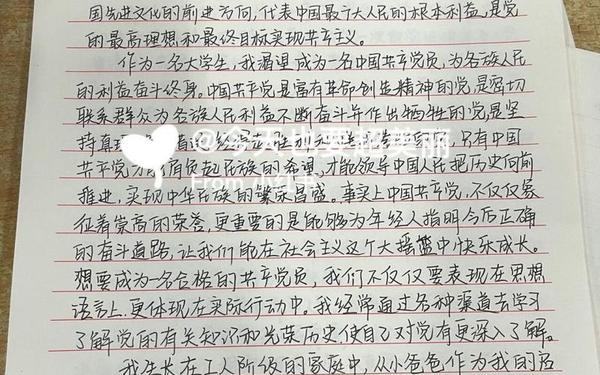 国先进文化的前进方向,代表中国最广大人民的根本利益,是党
的最高理想和最终目标实现共产主义。
作为一名大学生,我渴望成为一名中国共产党员,为各族人民
的利益奋斗终身。中国共产党是富有革命创造精神的党,是密切
联系群众为各族人民利益不断奋斗并作出牺牲的党,是坚
持真 只有中国
共产党 肩负起民族的希望,才能领导中国人民把历史向前
推进,实现中华民族的繁荣昌盛。事实上中国共产党,不仅仅象
征着崇高的荣誉,更重要的是能够为年经人指明今后正确
的奋斗道路,让我们能在社会主义这个大摇篮中快乐成长。
想要成为一名合格的共产党员,我们不仅仅要表现在思想
语言上,更体现在实际行动中。我经常通过各种渠道去学习
了解党的有关知识和光荣历史使自己对党有更深入了解。
我生长在工人阶级的家庭中,从小爸爸作为我的启